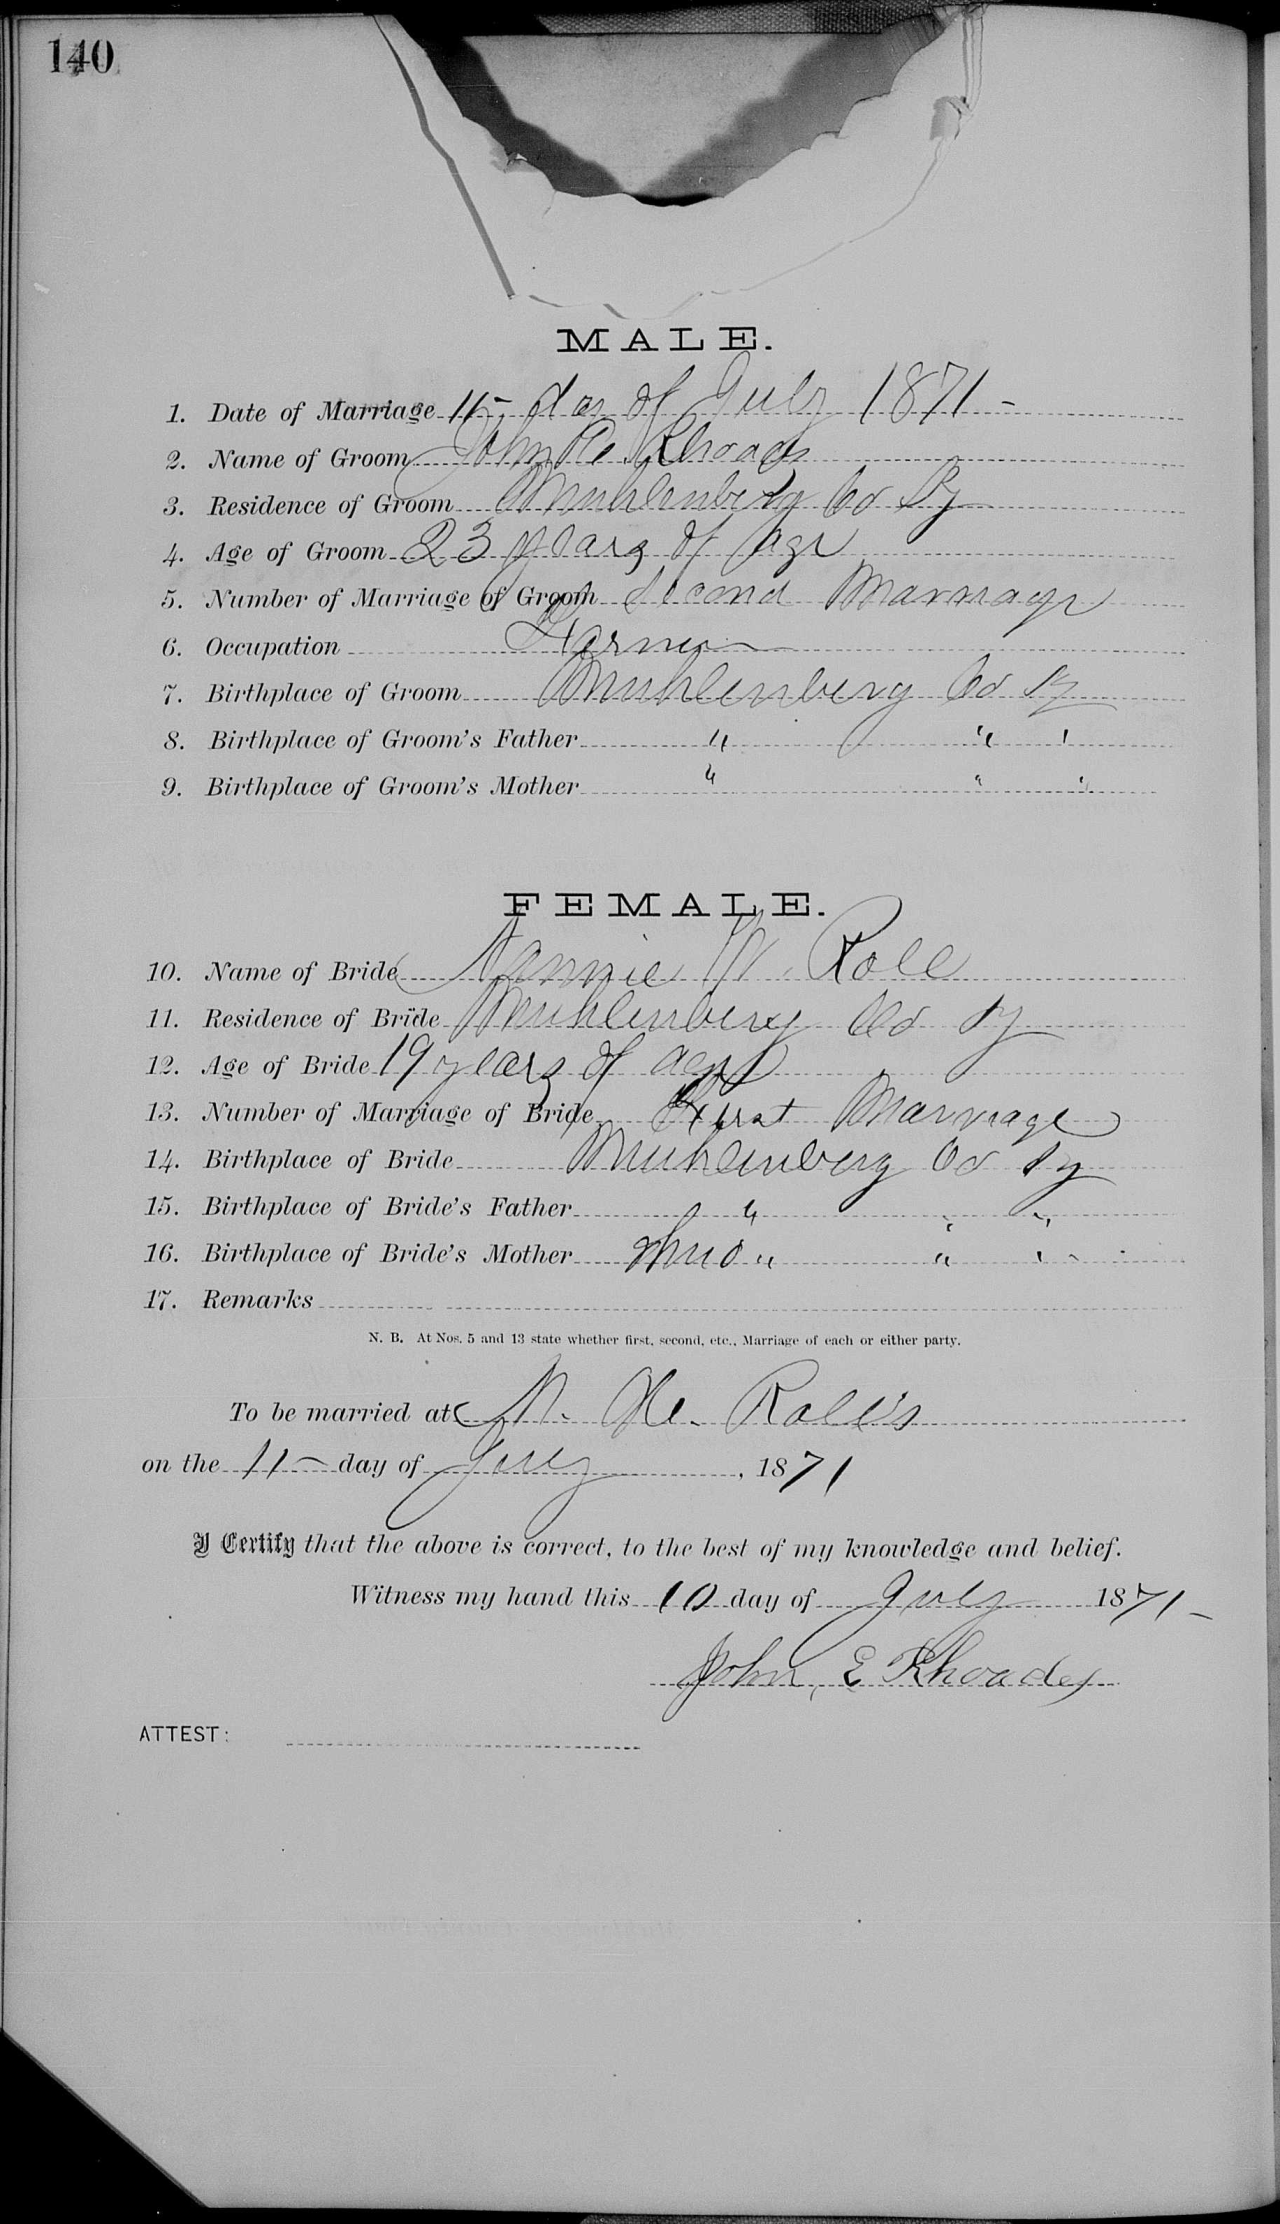 140
MALE.
1. Date of Marriage 11- day of July 1871-
2. Name of Groom John E. Rhoads
3. Residence of Groom Muhlenberg Co Ky
4. Age of Groom 23 years of age
5. Number of Marriage of Groom Second Marriage
6. Occupation Farmer
7. Birthplace of Groom Muhlenberg Co Ky
8. Birthplace of Groom's Father " " "
9. Birthplace of Groom's Mother " " "
FEMALE.
10. Name of Bride Nannie Roll
11. Residence of Bride Muhlenberg Co Ky
12. Age of Bride 19 years of age
13. Number of Marriage of Bride First Marriage
14. Birthplace of Bride Muhlenberg Co Ky
15. Birthplace of Bride's Father " " "
16. Birthplace of Bride's Mother " " "
17. Remarks
N. B. At Nos. 5 and 13 state whether first, second, etc., Marriage of each or either party.
To be married at Roll's
on the 11- day of July, 1871
I Certify that the above is correct, to the best of my knowledge and belief.
Witness my hand this 10 day of July 1871-
John, E Rhoades
ATTEST: